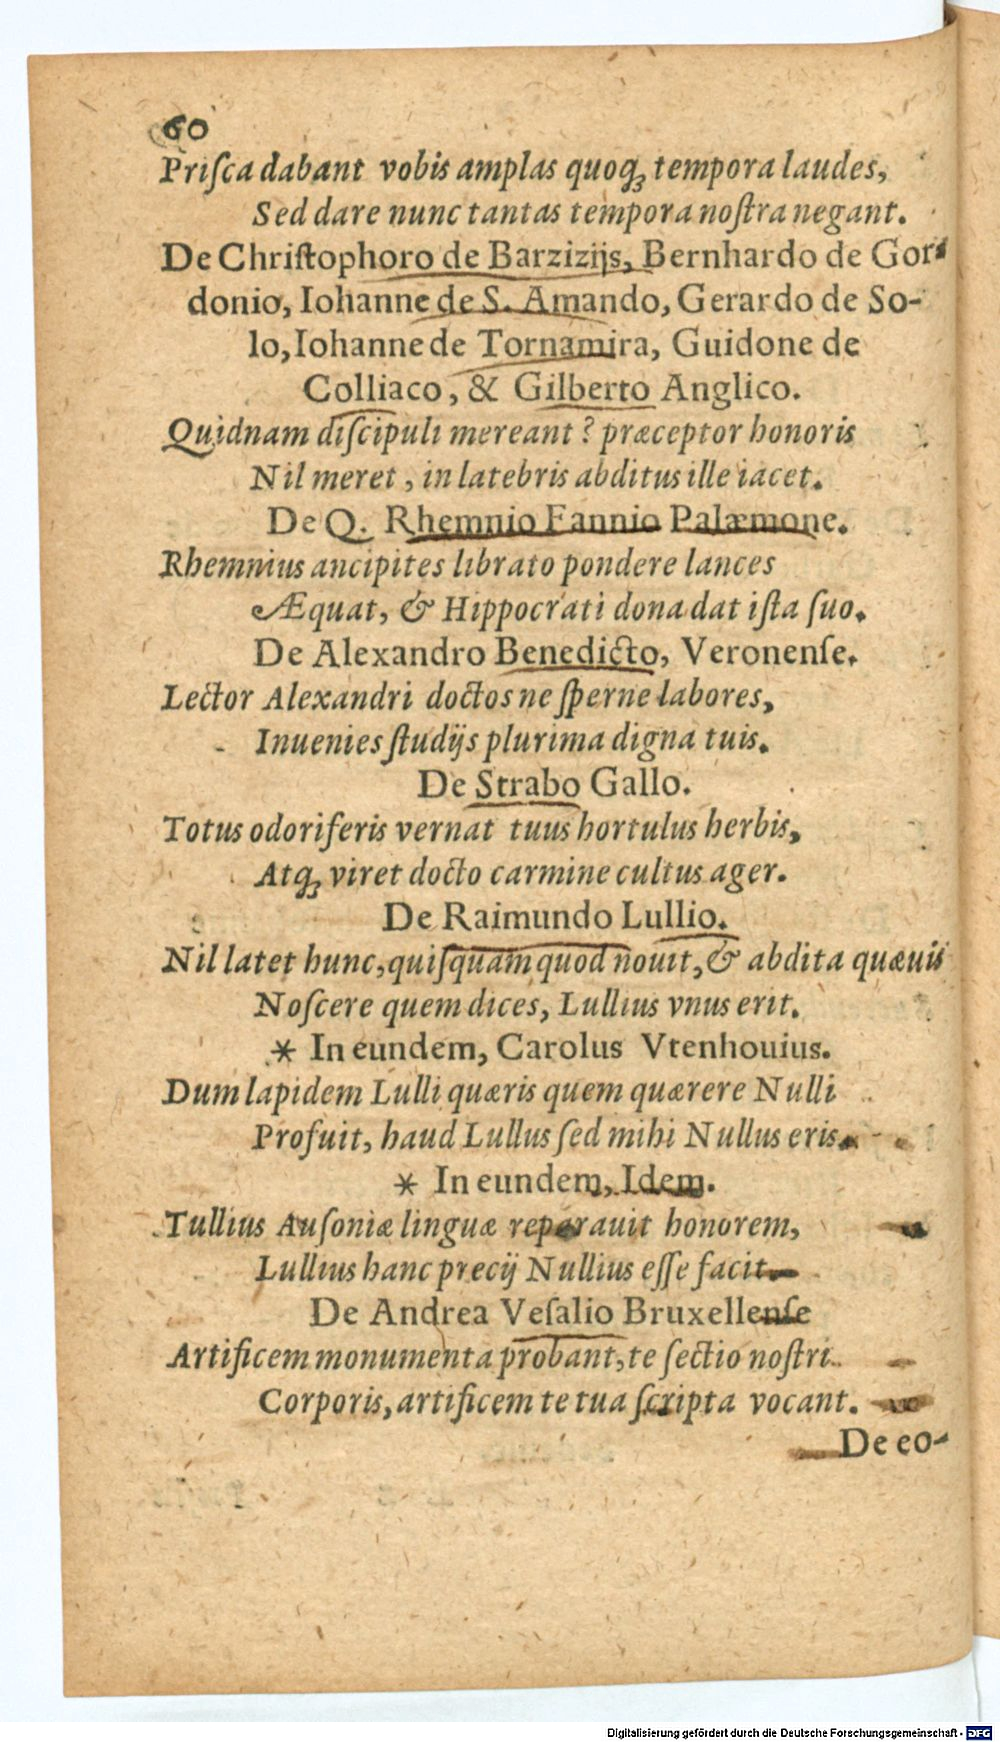 60
Priſca dabant vobis amplas quoq; tempora laudes,
Sed dare nunc tantas tempora noſtra negant.
De Chriſtophoro de Barzizijs, Bernhardo de Gor-
donio, Iohanne de S. Amando, Gerardo de So-
lo, Iohanne de Tornamira, Guidone de
Colliaco, & Gilberto Anglico.
Quidnam diſcipuli mereant? præceptor honoris
Nil meret, in latebris abditus ille iacet.
De Q. Rhemnio Fannio Palæmone.
Rhemnius ancipites librato pondere lances
Æquat, & Hippocrati dona dat iſta ſuo.
De Alexandro Benedicto, Veronenſe.
Lector Alexandri doctos ne ſperne labores,
Inuenies ſtudijs plurima digna tuis.
De Strabo Gallo.
Totus odoriferis vernat tuus hortulus herbis,
Atq; viret docto carmine cultus ager.
De Raimundo Lullio.
Nil latet hunc, quiſquam quod nouit, & abdita quæuis
Noſcere quem dices, Lullius vnus erit.
* In eundem, Carolus Vtenhouius.
Dum lapidem Lulli quæris quem quærere Nulli
Profuit, haud Lullus ſed mihi Nullus eris.
* In eundem, Idem.
Tullius Auſoniæ linguæ reparauit honorem,
Lullius hanc precij Nullius eſſe facit.
De Andrea Veſalio Bruxellenſe
Artificem monumenta probant, te ſectio noſtri
Corporis, artificem te tua ſcripta vocant.
De eo-
Digitalisierung gefördert durch die Deutsche Forschungsgemeinschaft - DFG